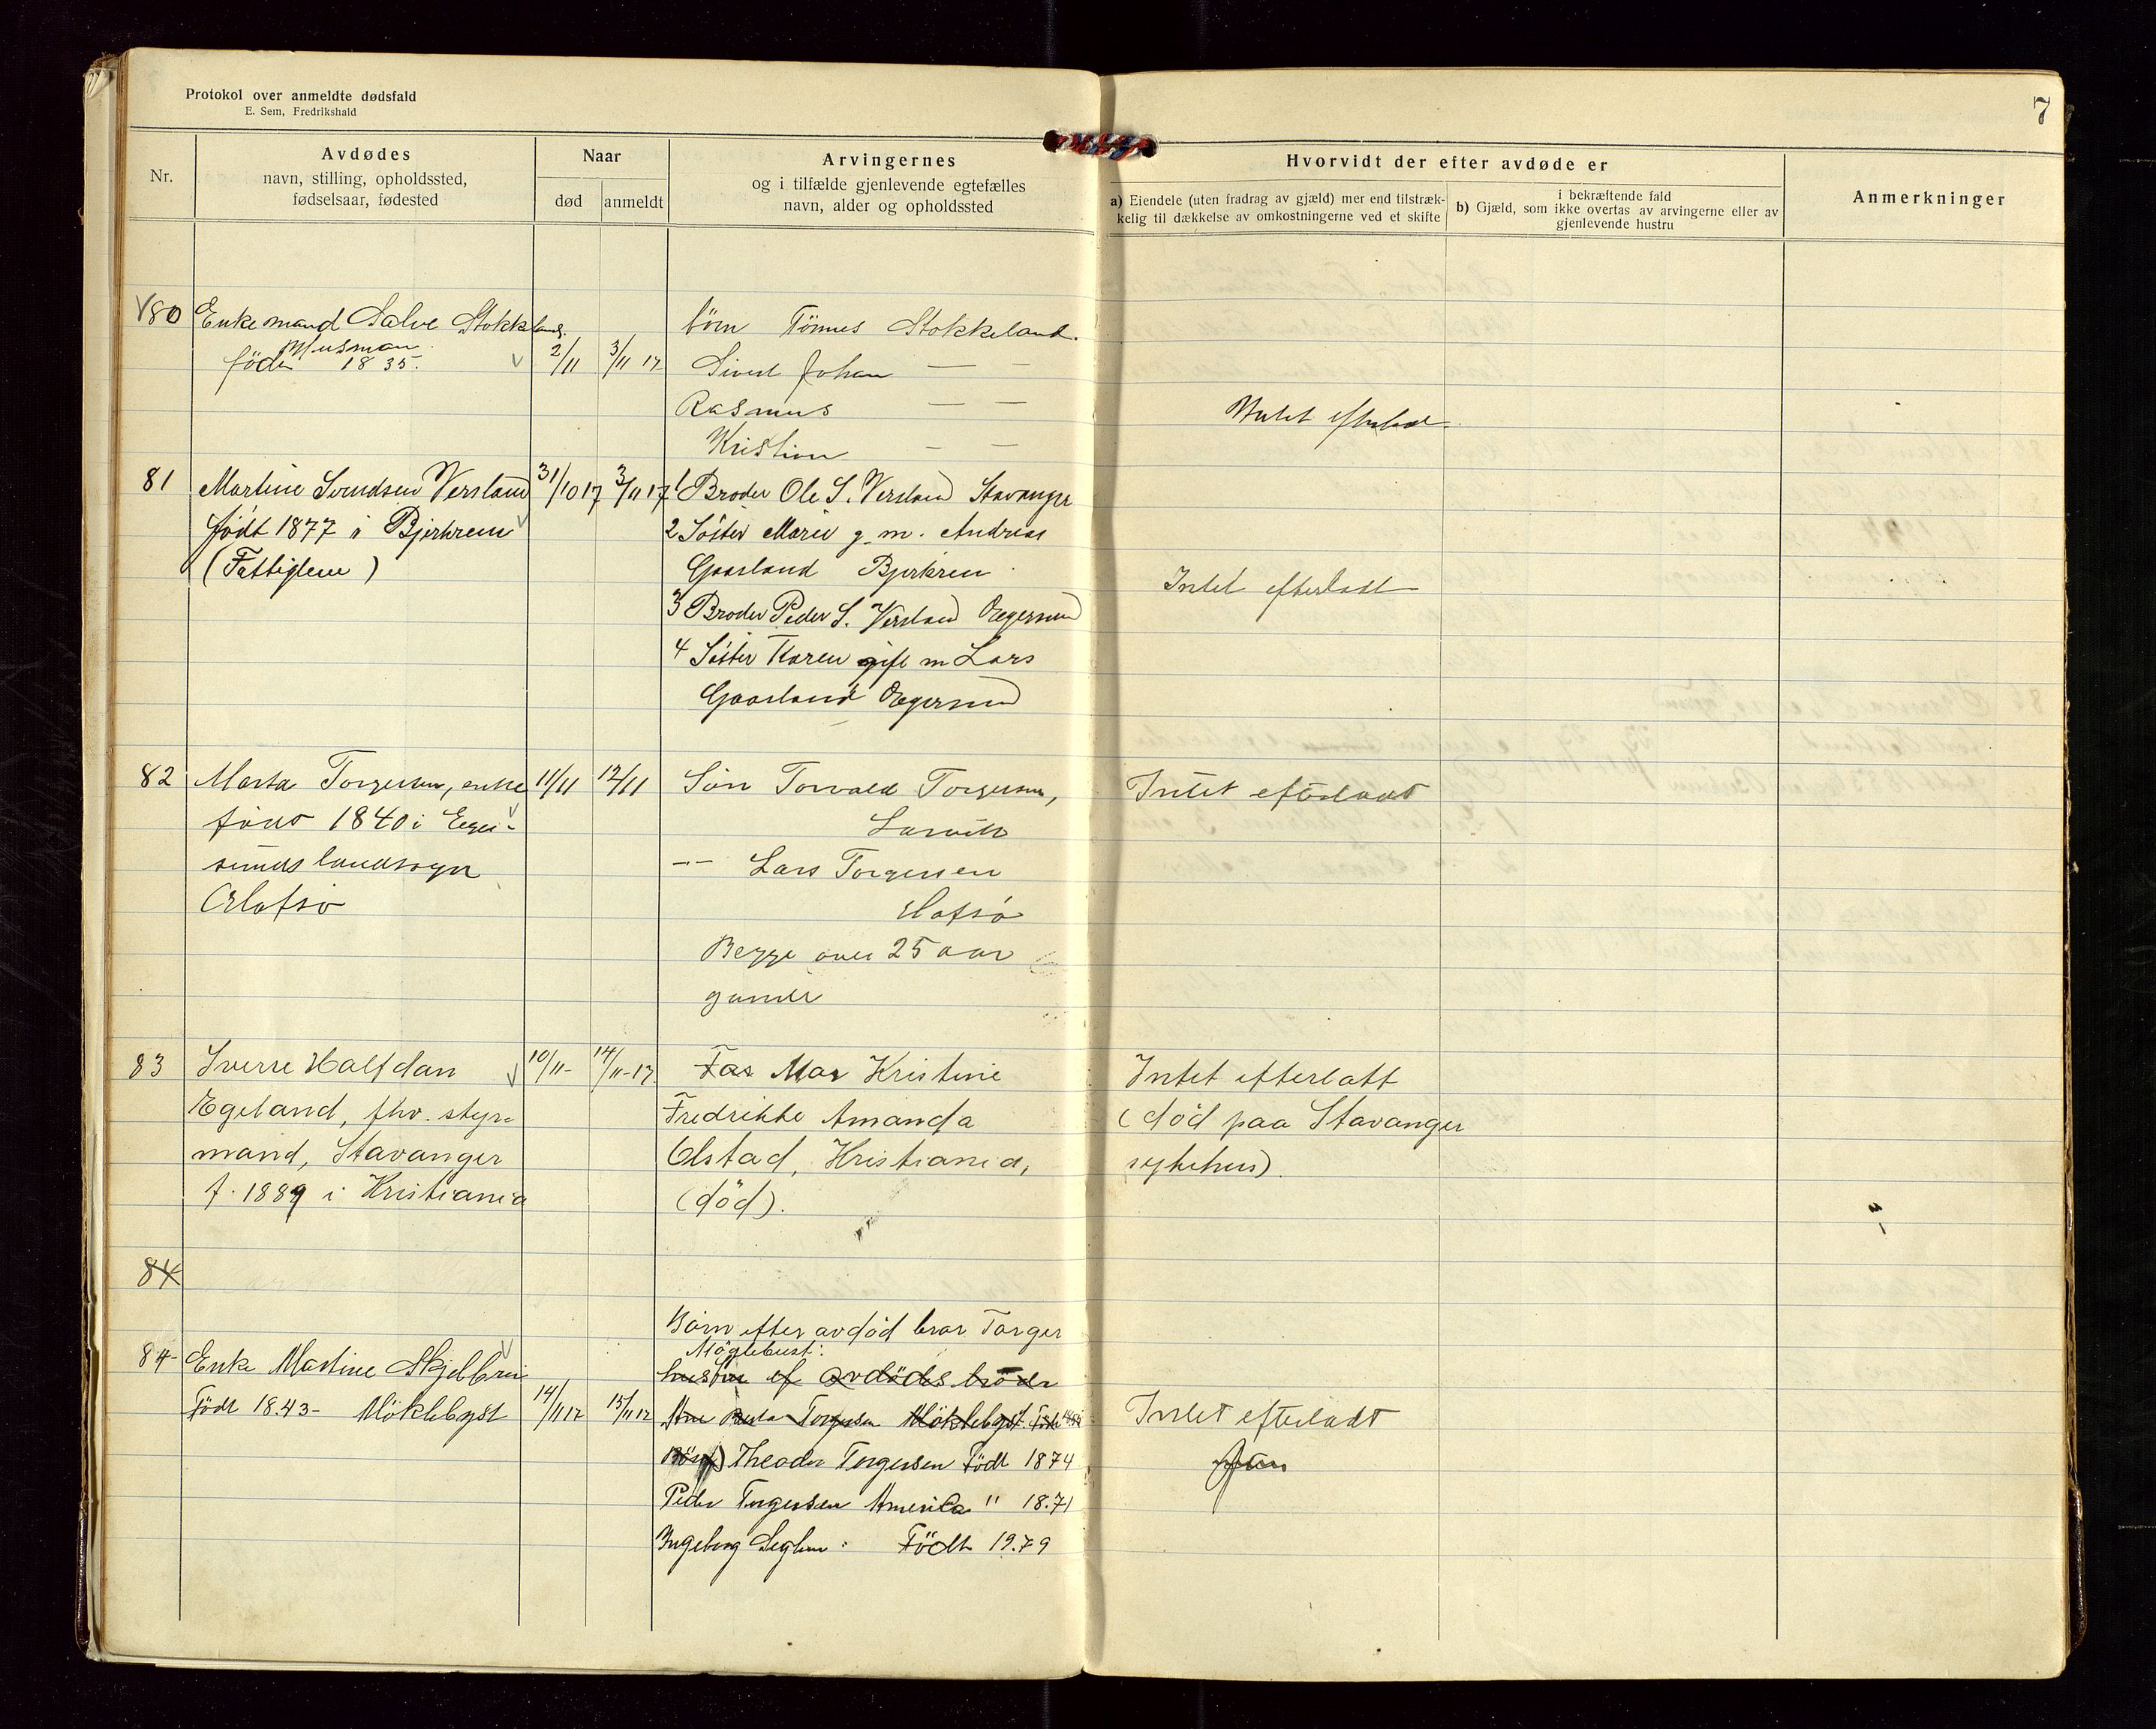 Protokol over anmeldte dødsfald
E. Sem, Fredrikshald
7
Nr.
Avdødes
navn, stilling, opholdssted,
fødselsaar, fødested
Naar
død
anmeldt
Arvingernes
og i tilfælde gjenlevende egtefælles
navn, alder og opholdssted
Hvorvidt der efter avdøde er
a) Eiendele (uten fradrag av gjæld) mer end tilstræk-
kelig til dækkelse av omkostningerne ved et skifte
i bekræftende fald
b) Gjæld, som ikke overtas av arvingerne eller av
gjenlevende hustru
Anmerkninger
80 Enkemand Salve Stokkland
Husman
född 1835.
2/11 3/11 17
børn Tönnes Stokkeland.
Sivert Johan — —
Rasmus — —
Kristian — —
Intet efterlat
81 Martine Svendsen Versland
født 1877 i Bjerkreim
(Fattiglem)
31/10 17 3/11 17
1 Broder Ole S. Versland Stavanger
2 Söster Marie g. m. Andreas
Gaasland Bjerkrem
3 Broder Peder S. Versland Egersund
4 Søster Karen gift m Lars
Gaasland Egersund
Intet efterladt
82 Marta Torgersen, enke
född 1840 i Eger-
sunds landsogn
Eløfsø
11/11 12/11
Søn Torvald Torgersen,
Larvik
-- Lars Torgersen
Hafsø
Begge over 25 aar
gamle
Intet efterladt
83 Sverre Halfdan
Egeland, fhv. styr-
mand, Stavanger
f. 1889 i Kristiania
10/11- 14/11-17
Far Mor Kristine
Fredrikke Amanda
Olstad, Kristiania,
(död).
Intet efterlatt
(död paa Stavanger
sykehus).
84
84- Enke Martine Skjelbrei
Födt 1843- Möklebyst
14/11 17 15/11 17
Börn efter avdöd bror Torger
Möglebust:
hustru ef avdödes broder
Ane Berta Torgersen Möklebyst. Född
Börn) Theodor Torgersen Född 1874
Peder Torgersen Amerika " 18.71
Ingeborg Seglem: Född 19.79
Intet efterladt